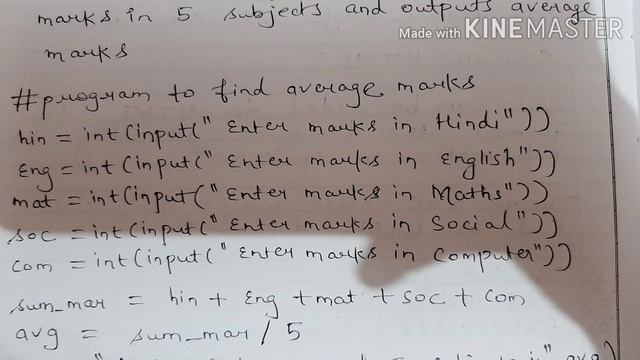 marks in 5 subjects and outputs average
Made with KINEMASTER
marks
#program to find average marks
hin = int(input(" Enter marks in Hindi"))
Eng = int(input(" Enter marks in English"))
mat = int(input(" Enter marks in Maths"))
soc = int(input(" Enter marks in Social"))
com = int(input(" Enter marks in Computer"))
sum_mar = hin + Eng + mat + soc + com
avg = sum_mar / 5